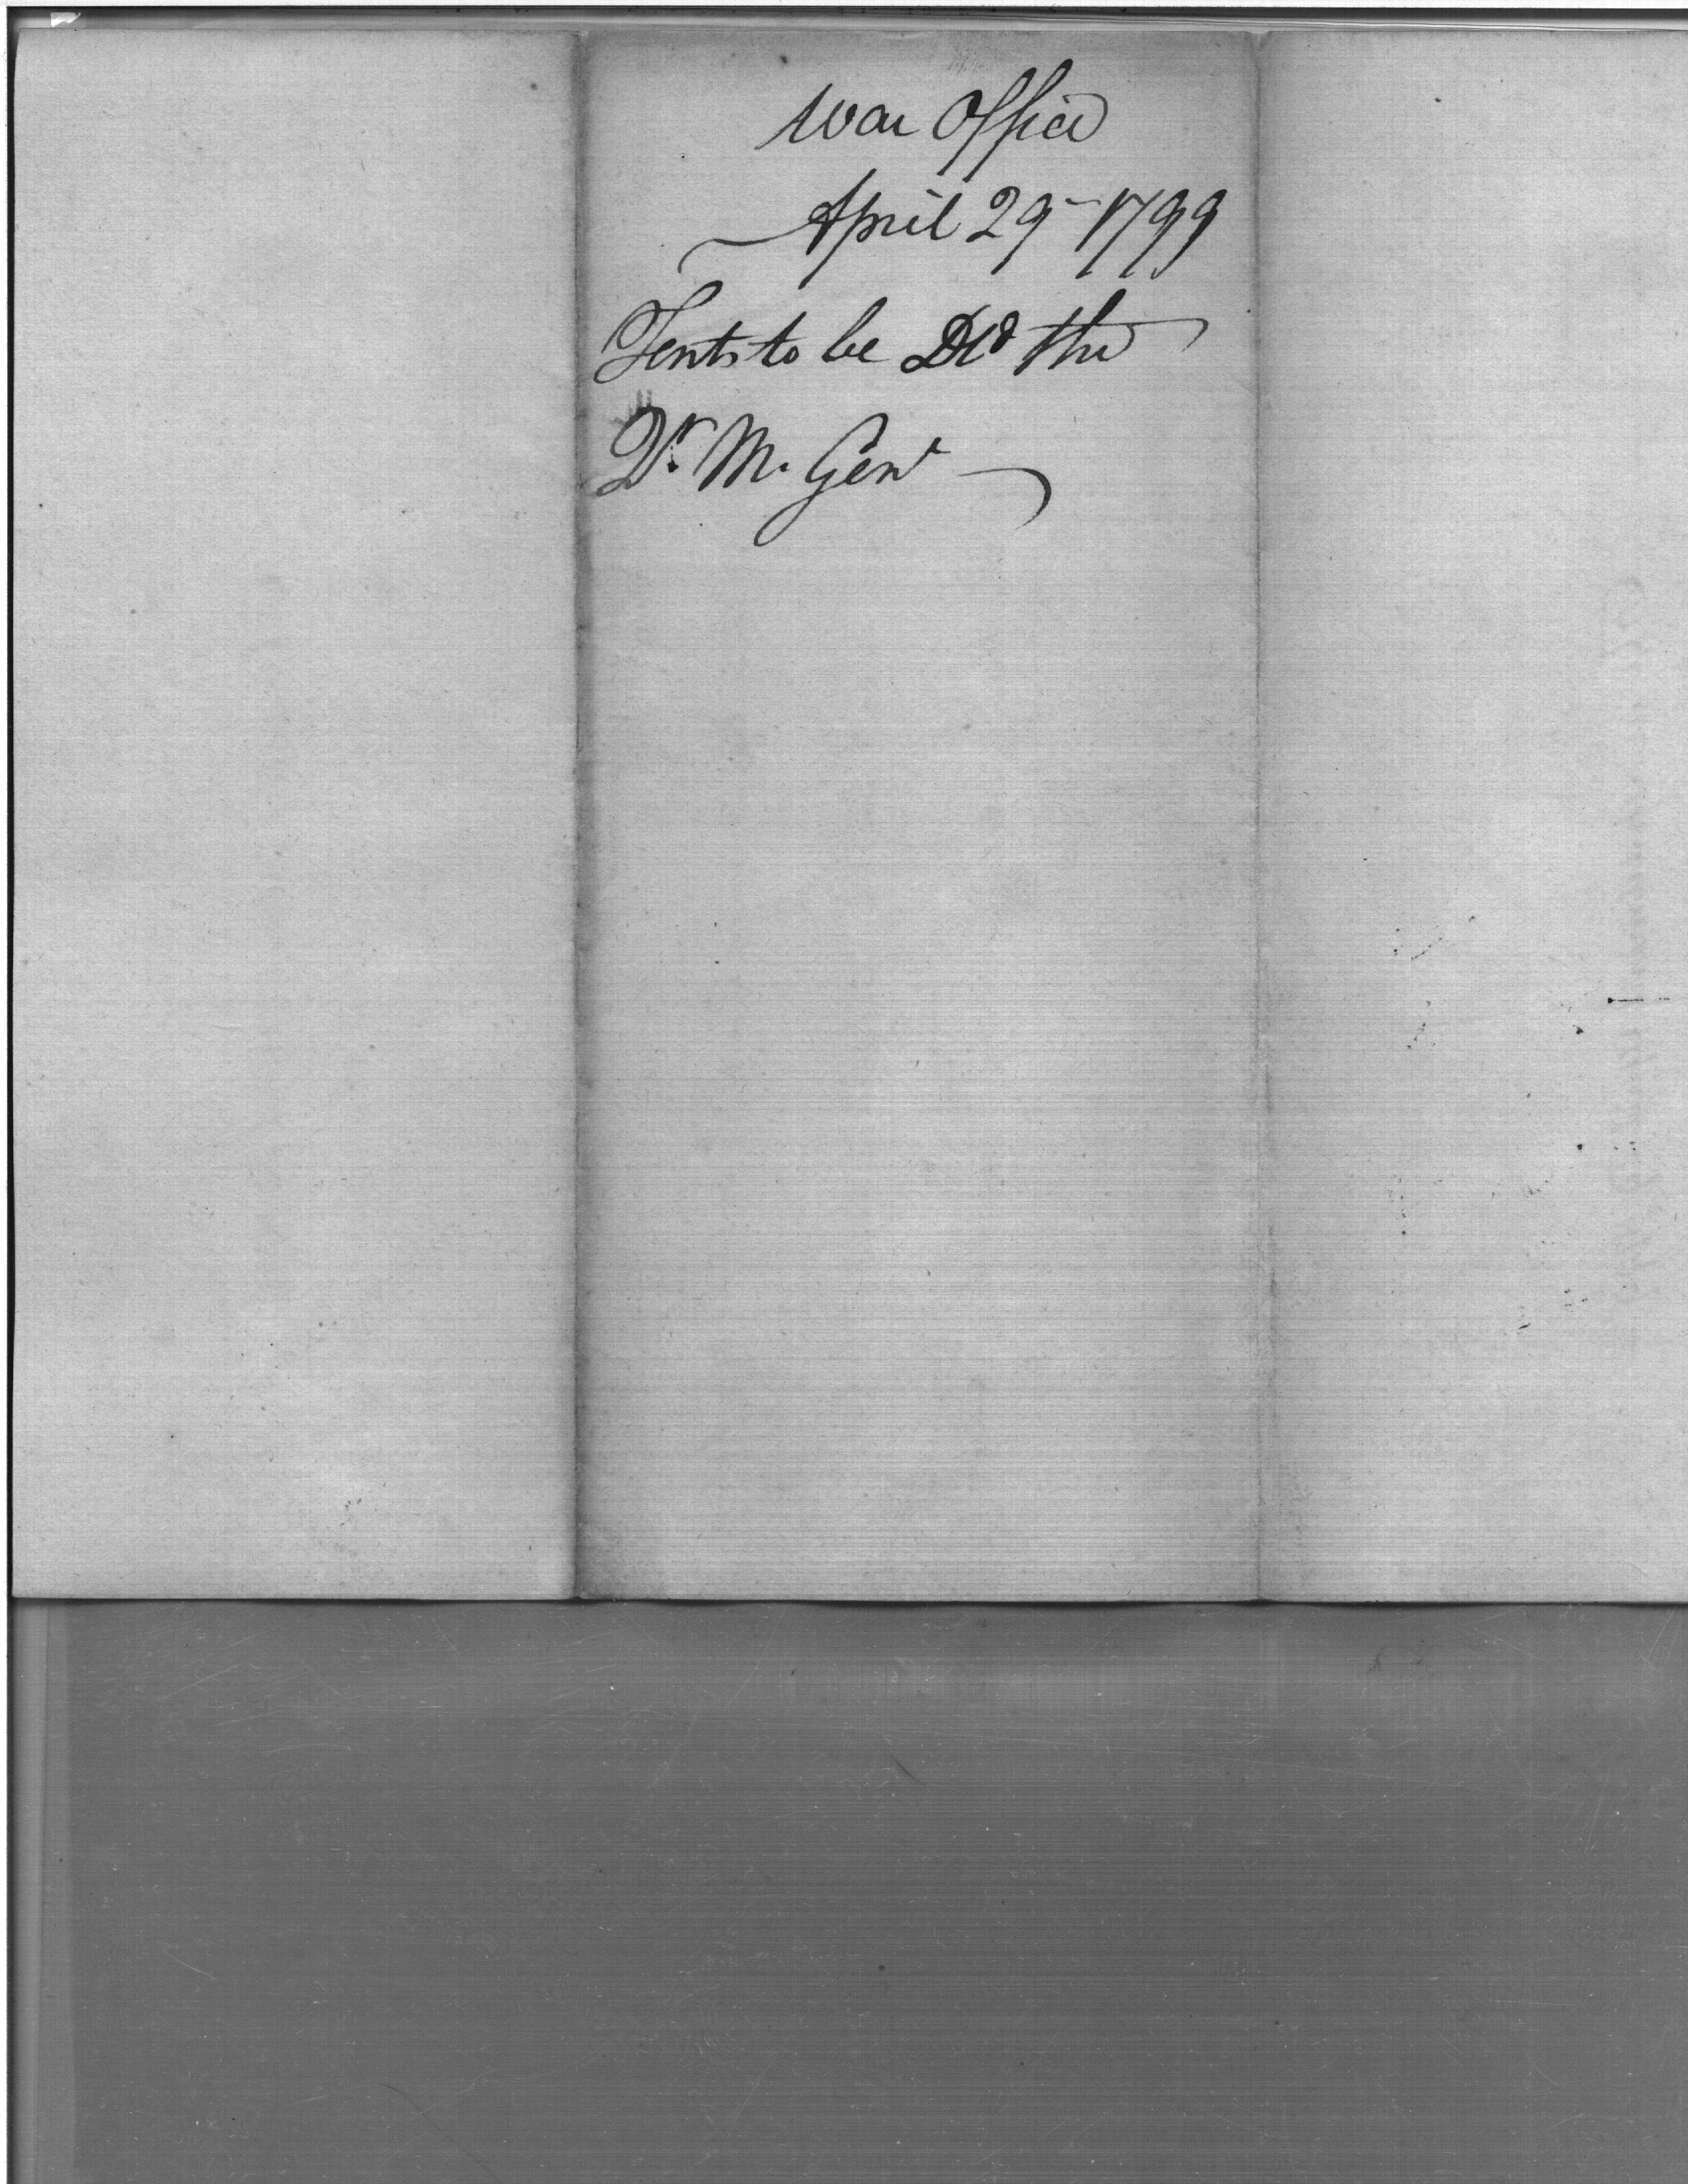 War Office
April 29 - 1799
Tents to be Dld the
Qr. M. Genl